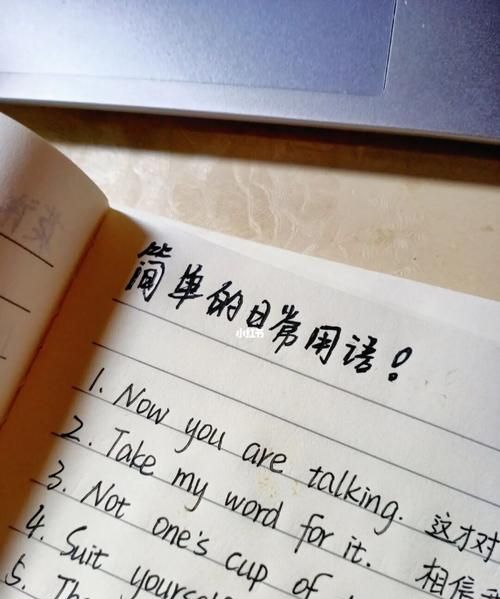 简单的日常用语!
小红书
1. Now you are talking. 这才对
2. Take my word for it. 相信
3. Not one's cup of
4. Suit yourself
5.